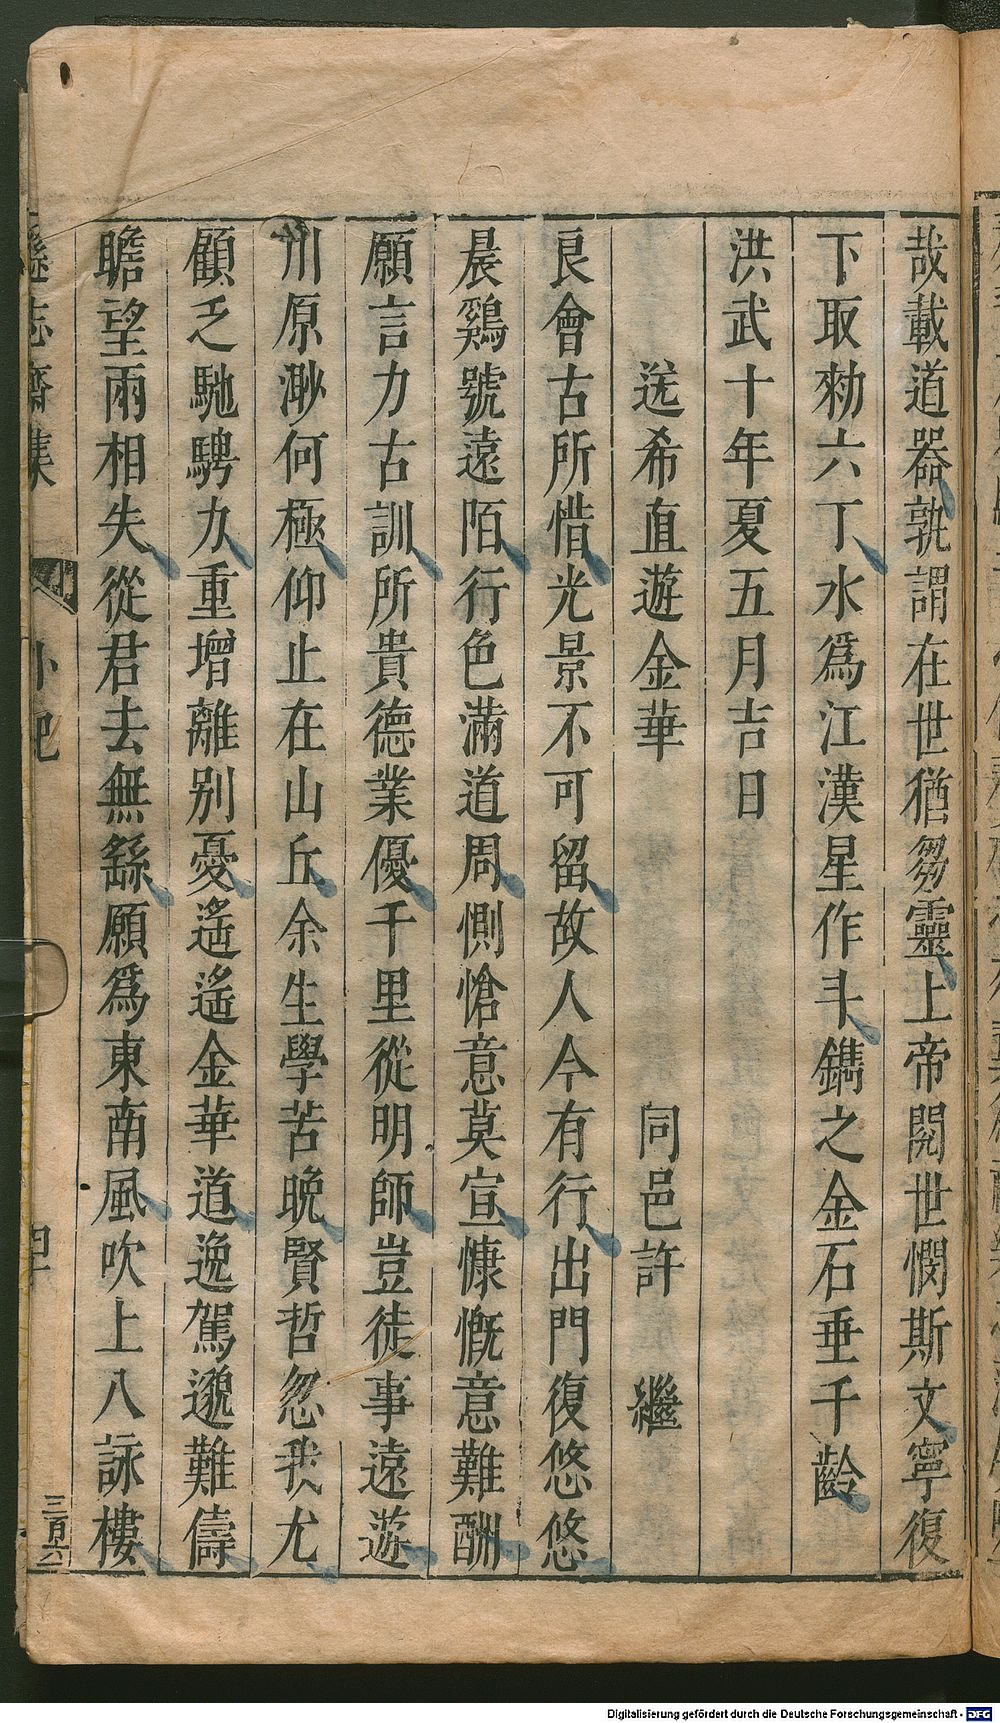 哉載道器孰謂在世猶芻靈上帝閔世憫斯文寧復
下取勑六丁水爲江漢星作斗鐫之金石垂千齡
洪武十年夏五月吉日
送希直遊金華 同邑許 繼
良會古所惜光景不可留故人今有行出門復悠悠
晨鷄號遠陌行色滿道周惻愴意莫宣慷慨意難酬
願言力古訓所貴德業優千里從明師豈徒事遠遊
川原渺何極仰止在山丘余生學苦晚賢哲忽我尤
顧乏馳騁力重增離别憂遙遙金華道逸駕邈難儔
瞻望兩相失從君去無繇願爲東南風吹上八詠樓
遜志齋集 外紀
三百六
Digitalisierung gefördert durch die Deutsche Forschungsgemeinschaft - DFG